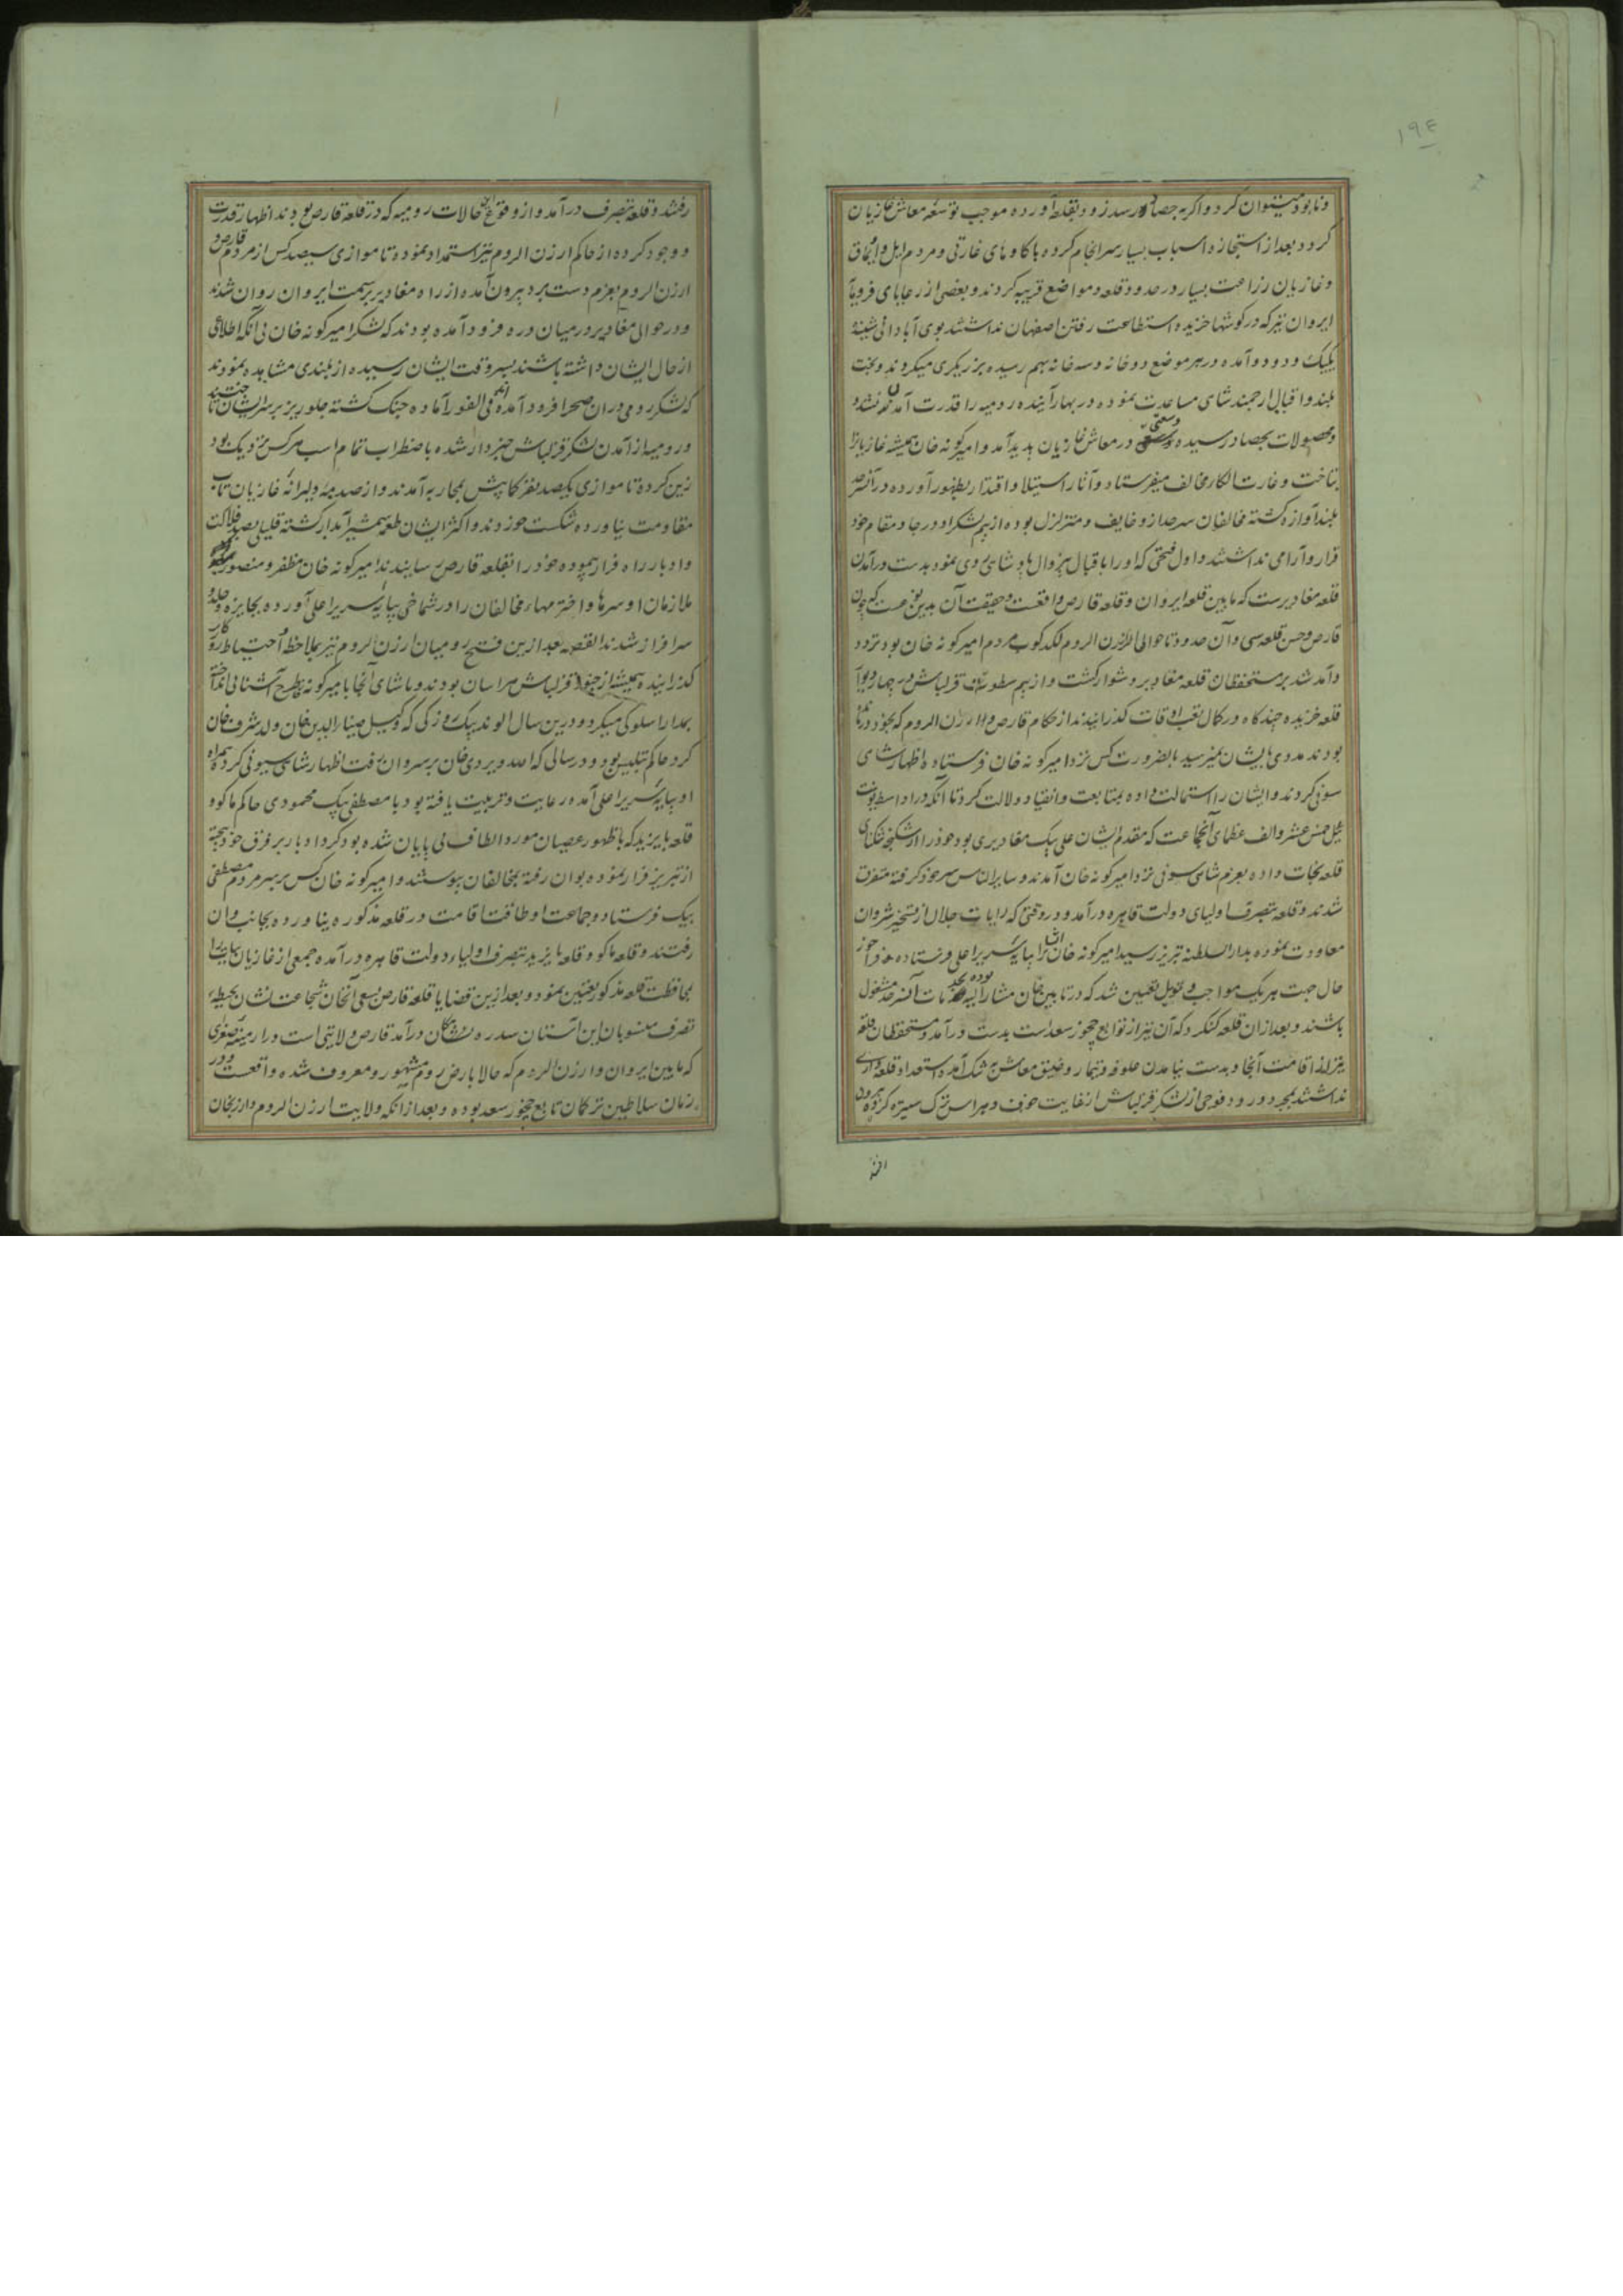 ۱۹۴
و نابود میتوان کرد و اگر بحصاد رسد زود بقلعه آورده موجب توسعه معاش غازیان
گردد بعد از استجازه اسباب بسیار سرانجام کرده با کاوهای غارتی و مردم ایل و اویماق
و غازیان زراعت بسیار در حدود قلعه و مواضع قریبه کردند و بعضی از رعایای فرومایه
ایروان نیز که در کوشها خزیده استطاعت رفتن اصفهان نداشتند ببوی آبادانی
یکیک و دو دو آمده در هر موضع دو خانه و سه خانه بهم رسیده برزیکری میکردند و بخت
بلند و اقبال ارجمند شاهی مساعدت نموده در بهار آینده رومیه را قدرت آمدن نشد و
محصولات بحصاد رسیده وسعتی در معاش غازیان پدید آمد و امیرکونه خان همیشه غازیانرا
بتاخت و غارت الکاء مخالف میفرستاد و آثار استیلا و اقتدار بظهور آورده در آنسرحد
بلند آوازه کشته مخالفان سرحد از و خایف و متزلزل بوده از بیم لشکر او در جا و مقام خود
قرار و آرامی نداشتند و اول فتحی که او را با اقبال بیزوال شاهی روی نمود بدست درآمدن
قلعه مغادبرست که مابین قلعه ایروان و قلعه قارص واقعست و حقیقت آن بدین نوعست که چون
قارص و حسن قلعه سی و آن حدود تا حوالی ارزن الروم لکدکوب مردم امیرکونه خان بود تردد
و آمد شد بر مستحفظان قلعه مغادبر دشوار کشت و از بیم سطوت قزلباش در چهار دیوار
قلعه خزیده چند کاه در کمال تعب اوقات کذرانیدند از حکام قارص و ارزن الروم که بخود درمانده
بودند مددی بایشان نمیرسید بالضرورت کس نزد امیرکونه خان فرستاده اظهار شاهی
سونی کردند و ایشان را استمالت داده بمتابعت و انقیاد دلالت کرد تا آنکه در اواسط یونت
ئیل خمس عشر و الف عظمای آنجماعت که مقدم ایشان علی بیک مغادبری بود خود را از شکنجه تنکنای
قلعه نجات داده بعزم شاهی سونی نزد امیرکونه خان آمدند و سایر الناس سر خود کرفته متفرق
شدند و قلعه بتصرف اولیای دولت قاهره درآمد و در وقتی که رایات جلال از تسخیر شروان
معاودت نموده بدار السلطنه تبریز رسید امیرکونه خان ایشانرا بپایه سریر اعلی فرستاده فراخور
حال جهت هریک مواجب و تیول تعیین شد که در تابین خان مشار الیه بوده بخدمات آنسرحد مشغول
باشند و بعد از آن قلعه کنکرد که آن نیز از توابع چخور سعد است بدست درآمد و مستحفظان قلعه
نیز از اقامت آنجا و بدست نیامدن علوفه و تیمار و ضیق معاش به تنک آمده استعداد قلعه داری
نداشتند بمجرد ورود فوجی از لشکر قزلباش از غایت خوف و هراس ترک ستیزه کرده بیرون
رفتند و قلعه بتصرف درآمد و از وقوع این حالات رومیه که در قلعه قارص بودند اظهار قدرت
و وجود کرده از حاکم ارزن الروم نیز استمداد نمودند تا موازی سیصد کس از مردم قارص و
ارزن الروم بعزم دست برد بیرون آمده از راه مغادبر بسمت ایروان روان شدند
و در حوالی مغادبر در میان دره فرود آمده بودند که لشکر امیرکونه خان بی آنکه اطلاعی
از حال ایشان داشته باشند بسر وقت ایشان رسیده از بلندی مشاهده نمودند
که لشکر رومی در آن صحرا فرود آمده‌اند فی الفور آماده جنک کشته جلوریز بر سر ایشان تاختند
و رومیه از آمدن لشکر قزلباش خبردار شده باضطراب تمام اسب هرکس نزدیک بود
زین کرده تا موازی یکصد نفر کمابیش بمحاربه آمدند و از صدمه دلیرانه غازیان تاب
مقاومت نیاورده شکست خوردند و اکثر ایشان طعمه شمشیر آبدار کشته قلیلی بصد فلاکت
و ادبار راه فرار پیموده خود را بقلعه قارص رسانیدند امیرکونه خان مظفر و منصور
ملازمان او سرها و اخترمهاء مخالفان را در شماخی بپایه سریر اعلی آورده بجایزه و جلدو
سرافراز شدند القصه بعد از این فتح رومیان ارزن الروم نیز بملاحظه و احتیاط روزکار
کذرانیده همیشه از جنود قزلباش هراسان بودند و پاشای آنجا با امیرکونه خان طرح آشنائی انداخته
بمدارا سلوکی میکرد و درین سال الوند بیک روزکی که وکیل ضیاء الدین خان ولد شرف خان
کرد حاکم تبلیس بود و در سالی که الله ویردی خان بر سر وان رفت اظهار شاهی سیونی کرده همراه
او بپایه سریر اعلی آمده رعایت و تربیت یافته بود با مصطفی بیک محمودی حاکم ماکو و
قلعه بایزید که با ظهور عصیان مورد الطاف بی پایان شده بود کرد ادبار بر فرق خود بیخته
از تبریز فرار نموده بوان رفته بمخالفان پیوستند و امیرکونه خان کس بر سر مردم مصطفی
بیک فرستاد و جماعت او طاقت اقامت در قلعه مذکوره نیاورده بجانب وان
رفتند و قلعه ماکو و قلعه بایزید بتصرف اولیاء دولت قاهره درآمده جمعی از غازیان بیات را
بمحافظت قلعه مذکور تعیین نمود و بعد از این قضایا قلعه قارص بسعی آنخان شجاعت نشان بحیطه
تصرف منسوبان این آستان سدره نشان درآمد قارص ولایتی است در ارمینه صغری
که مابین ایروان و ارزن الروم که حالا بارض روم مشهور و معروف شده واقعست و در
زمان سلاطین ترکمان تابع چخور سعد بوده و بعد از آنکه ولایت ارزن الروم و ارزنجان